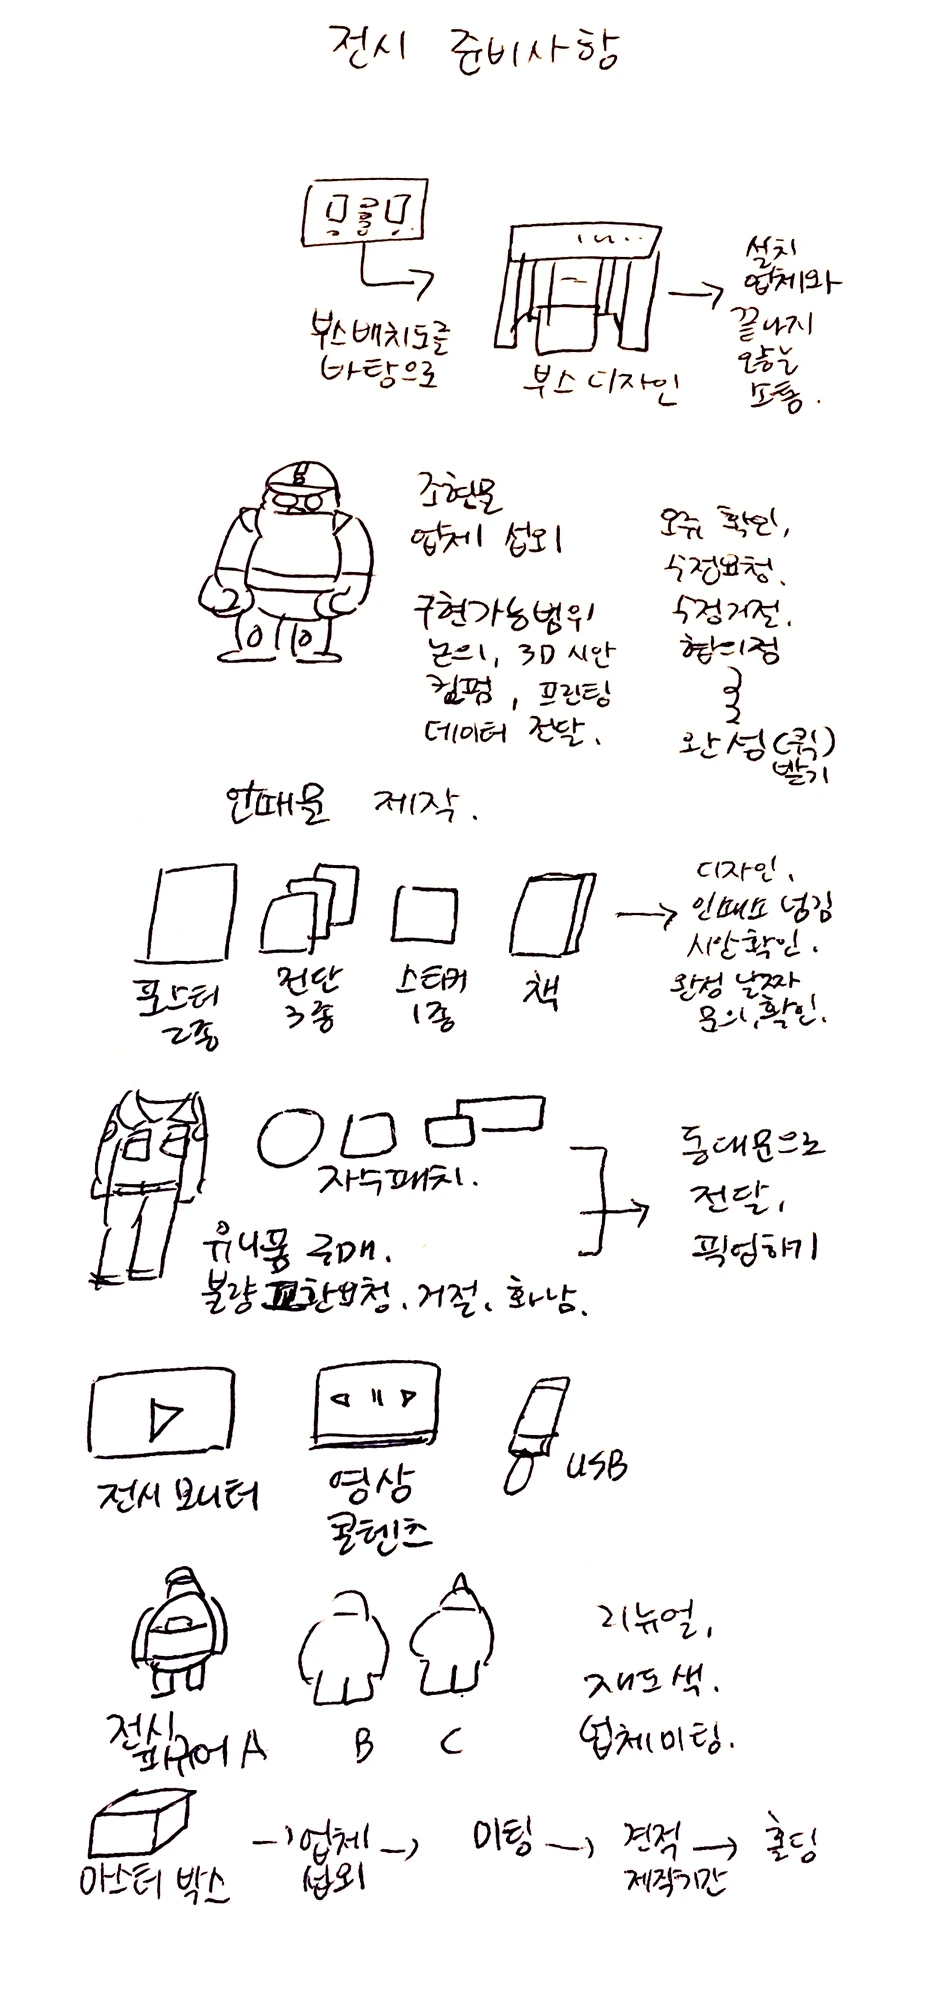 전시 준비사항
부스배치도를
바탕으로
부스 디자인
설치
업체와
끝나지
않는
소통.
조현물
업체 섭외
구현가능범위
논의, 3D 시안
컨펌, 프린팅
데이터 전달.
오류 확인,
수정요청.
수정거절.
협의점
완성(퀵)
받기
인쇄물 제작.
포스터
2종
전단
3종
스티커
1종
책
디자인.
인쇄소 넘김
시안확인.
완성 날짜
문의,확인.
자수패치.
유니폼 구매.
불량 교환요청. 거절. 화남.
동대문으로
전달,
픽업하기
전시 모니터
영상
콘텐츠
USB
전시
피규어 A
B
C
리뉴얼,
재도색.
업체미팅.
아스터 박스
업체
섭외
미팅
견적
제작기간
홀딩